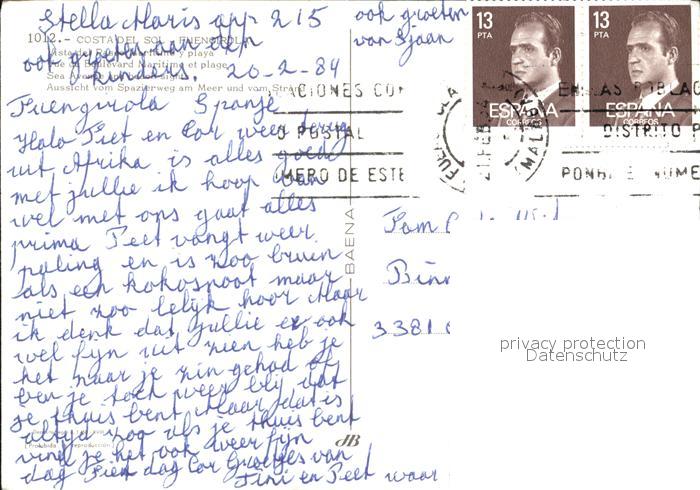 Stella Maris app 215
ook groeten aan den
kinders. 20-2-84
ook groeten
van Sjaan
1012.- COSTA DEL SOL - FUENGIROLA
Vista del Paseo Marítimo y playa
Vue du Boulevard Maritime et plage
Sea Avenue and
Aussicht vom Spazierweg am Meer und vom Strand
Fuengirola Spanje
Halo Piet en Cor weer terug
uit Afrika is alles goed
met jullie ik hoop van
wel met ons gaat alles
prima Peet vangt weer
paling en is zoo bruin
als een kokosnoot maar
niet zoo lelijk hoor Maar
ik denk dat jullie er ook
wel fijn uit zien heb je
het naar je zin gehad of
ben je toch weer blij dat
je thuis bent Maar dat is
altyd zoo als je thuis bent
vind je het ook weer fijn
dag Pien dag Cor Groetjes van
Tini en Peet waar
BAENA
dB
Prohibida reproducción
13
PTA
ESPAÑA
CORREOS
13
PTA
ESPAÑA
CORREOS
CIONES CO
O POSTAL
MERO DE ESTE
FUENGIROLA
MALAGA
EN LAS POBLAC
DISTRITO P
PONGA NUME
Fam
Binn
3381
privacy protection
Datenschutz